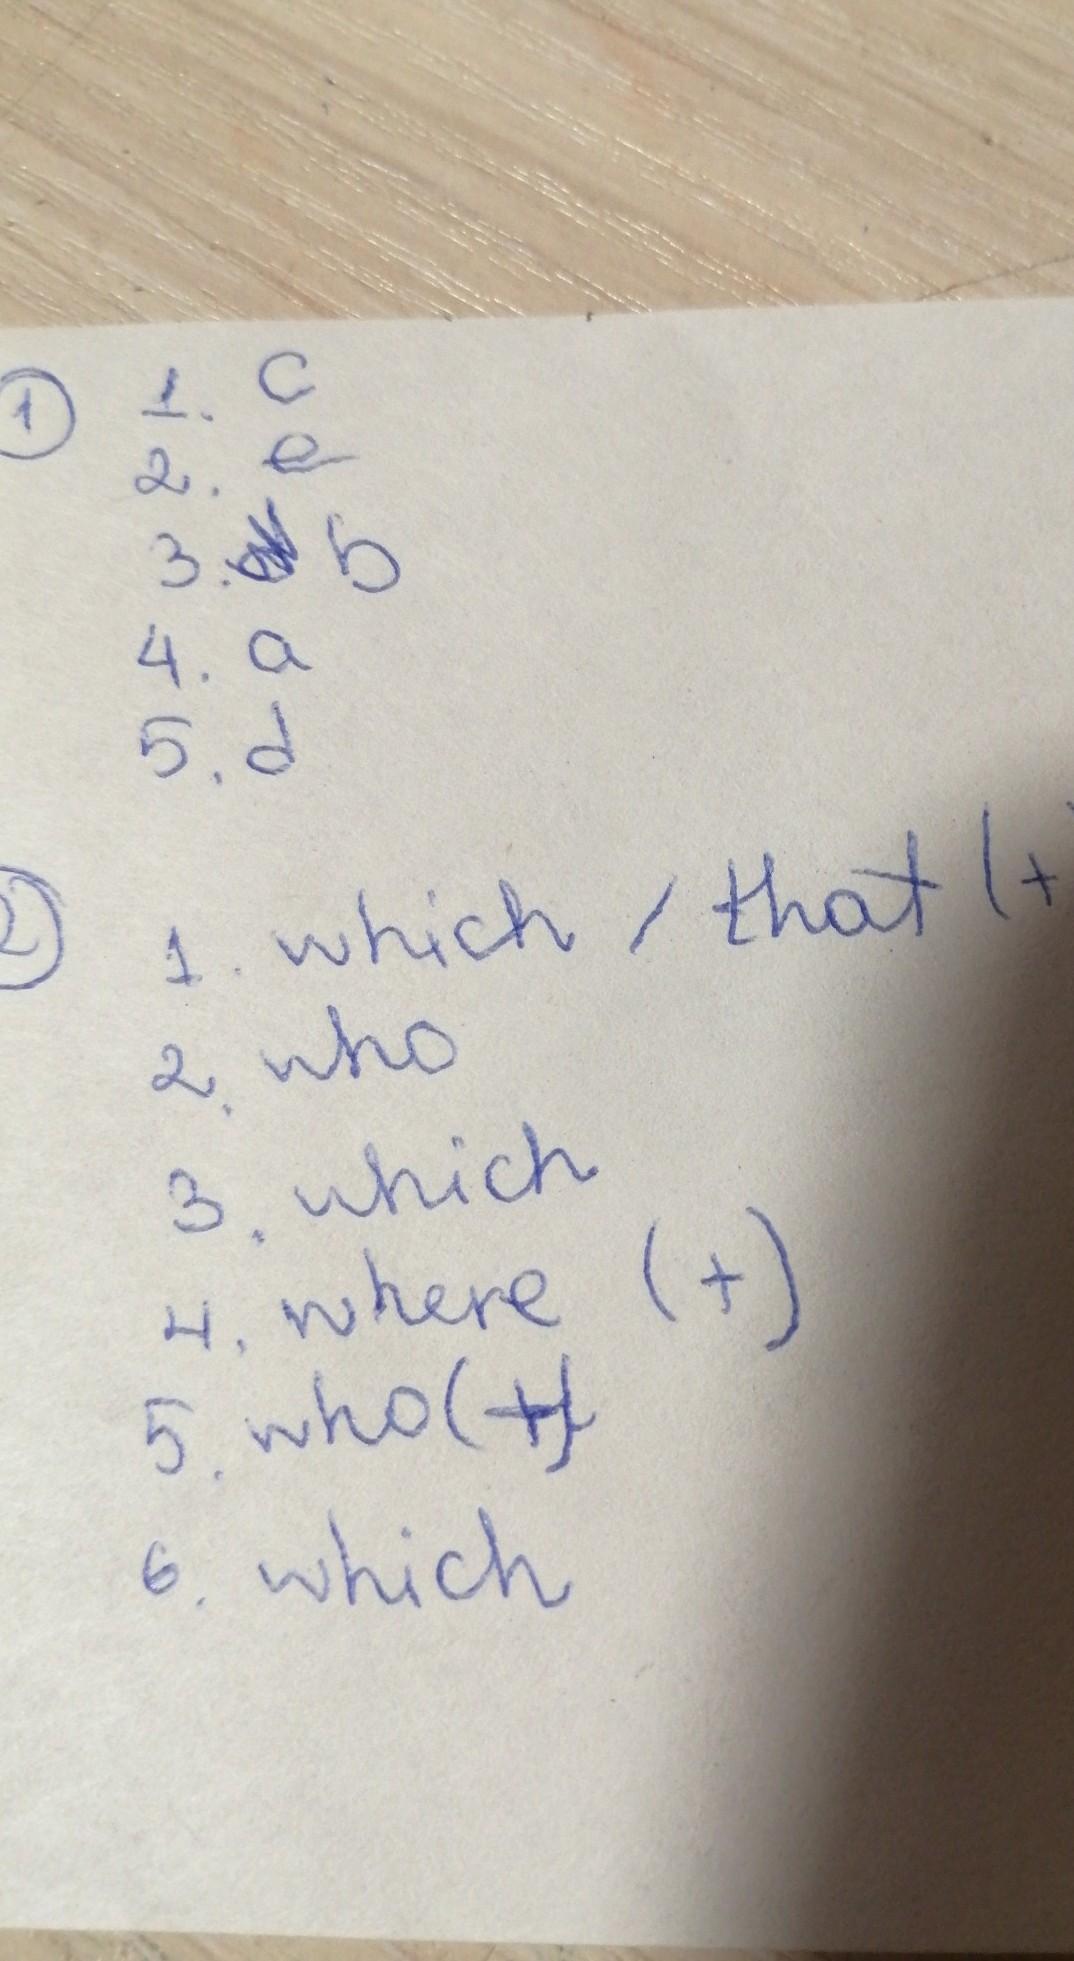 ① 1. c
2. e
3. b
4. a
5. d
② 1. which / that (+
2. who
3. which
4. where (+)
5. who (+)
6. which